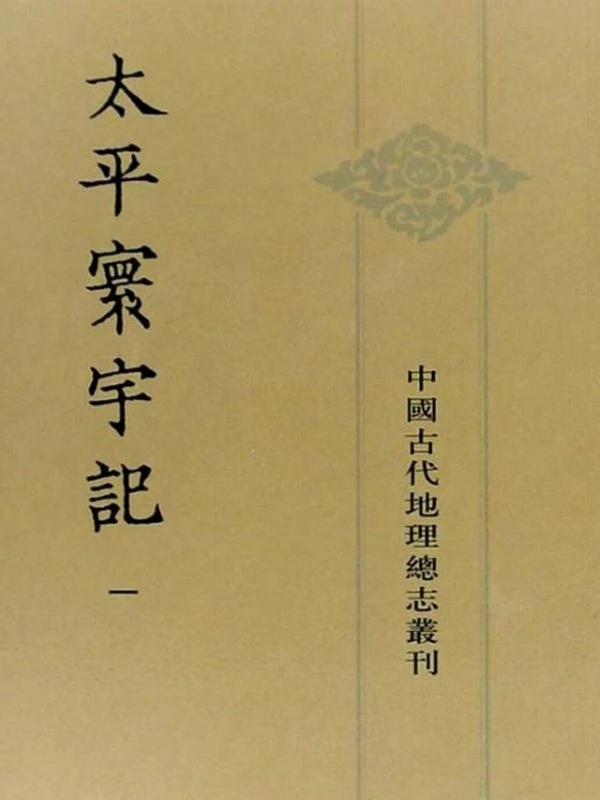 中國古代地理總志叢刊
太平寰宇記
一